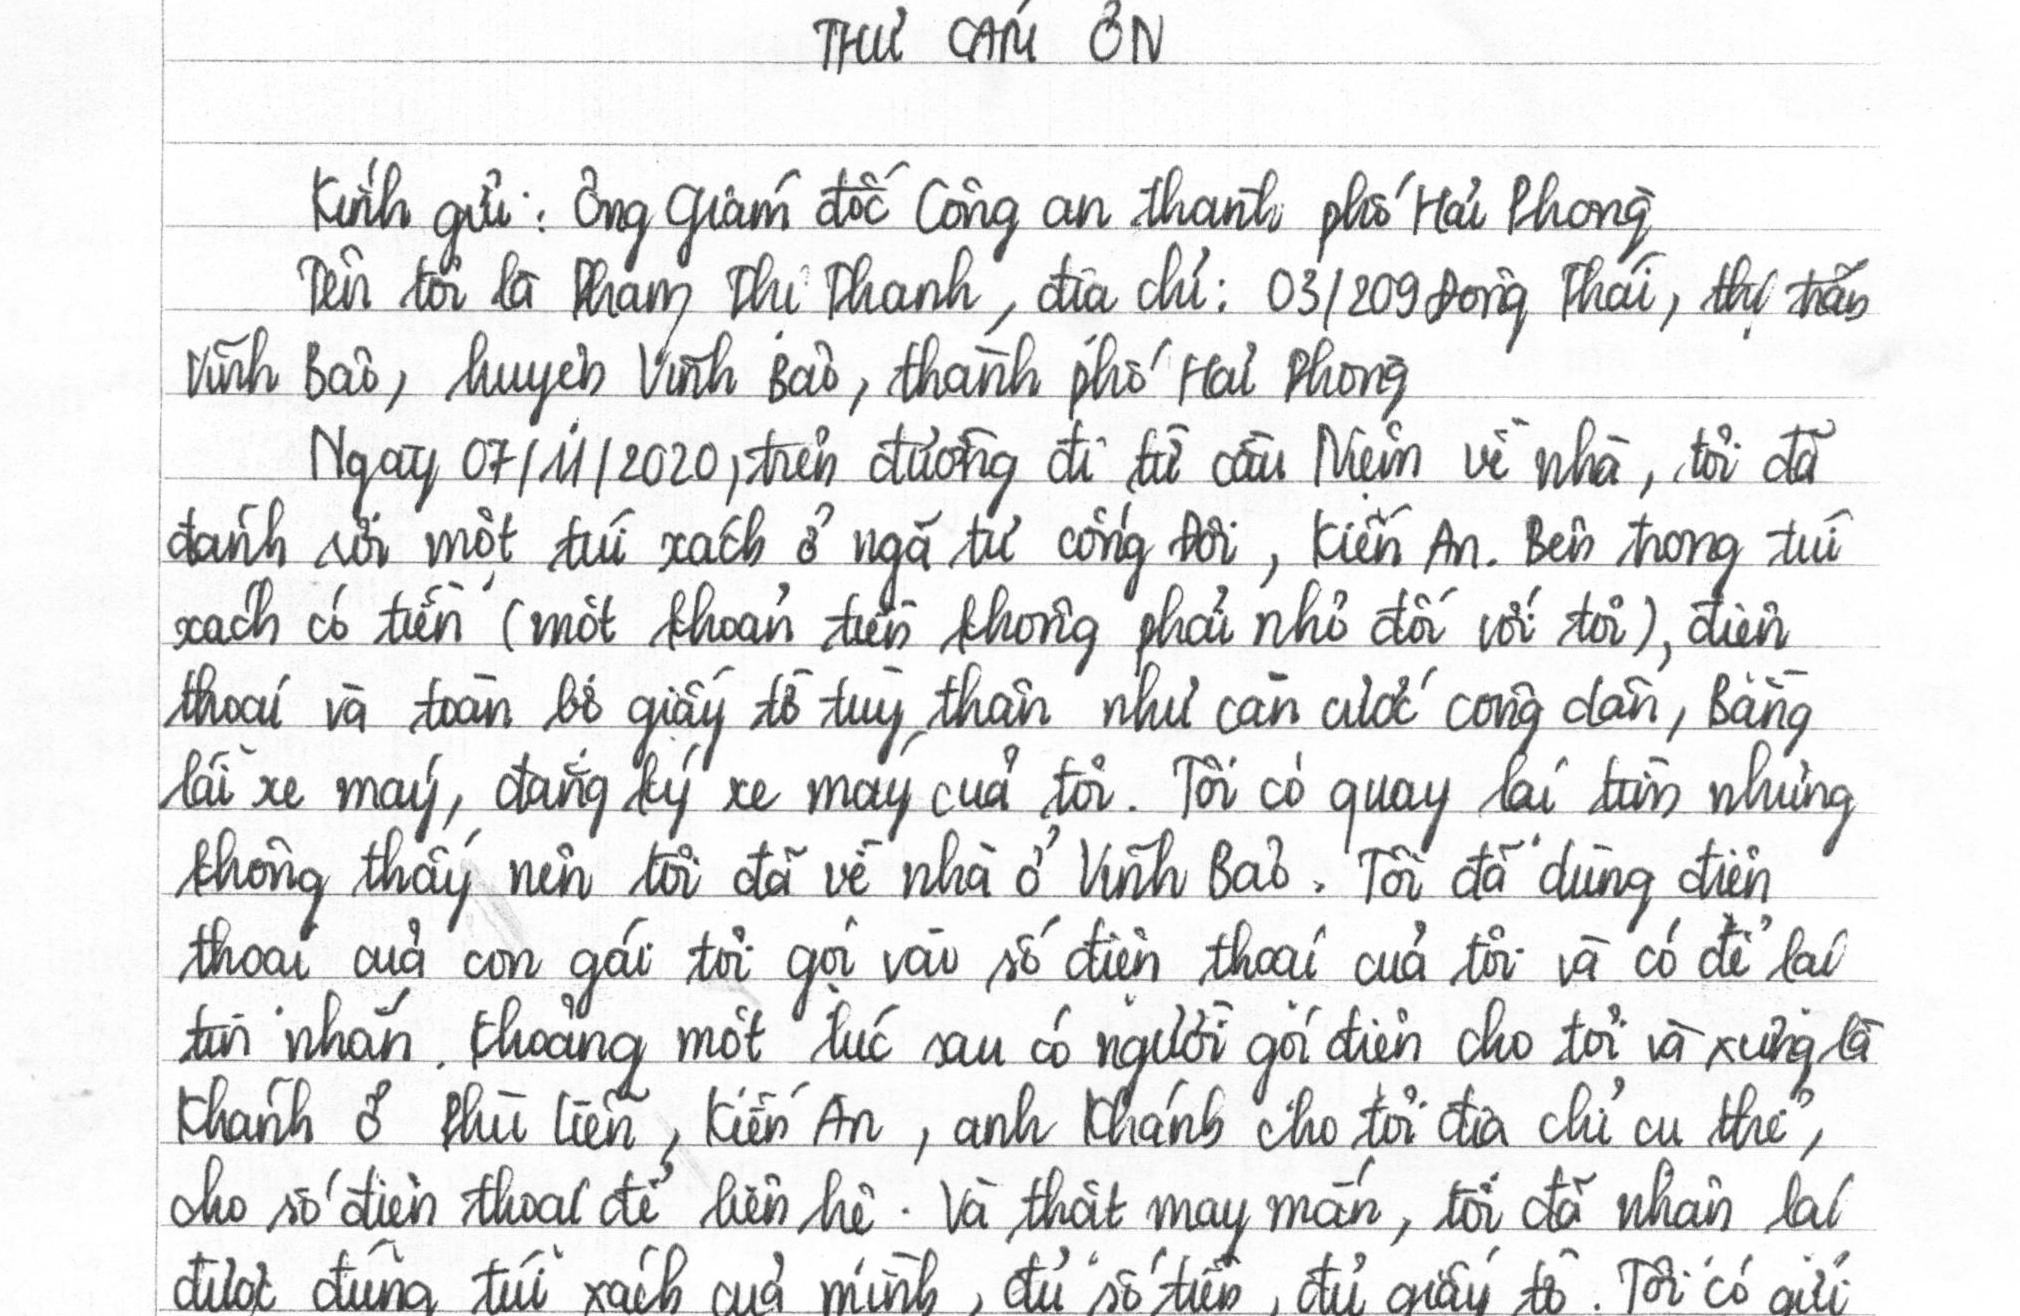 THƯ CẢM ƠN
Kính gửi: Ông Giám đốc Công an thành phố Hải Phòng
Tên tôi là Phạm Thị Thanh, địa chỉ: 03/209 Đông Thái, thị trấn
Vĩnh Bảo, huyện Vĩnh Bảo, thành phố Hải Phòng
Ngày 07/11/2020, trên đường đi từ cầu Niệm về nhà, tôi đã
đánh rơi một túi xách ở ngã tư cống Đôi, Kiến An. Bên trong túi
xách có tiền (một khoản tiền không phải nhỏ đối với tôi), điện
thoại và toàn bộ giấy tờ tuỳ thân như căn cước công dân, Bằng
lái xe máy, đăng ký xe máy của tôi. Tôi có quay lại tìm nhưng
không thấy nên tôi đã về nhà ở Vĩnh Bảo. Tôi đã dùng điện
thoại của con gái tôi gọi vào số điện thoại của tôi và có để lại
tin nhắn. Khoảng một lúc sau có người gọi điện cho tôi và xưng là
Khánh ở Phù Liễn, Kiến An, anh Khánh cho tôi địa chỉ cụ thể,
cho số điện thoại để liên hệ. Và thật may mắn, tôi đã nhận lại
được đúng túi xách của mình, đủ số tiền, đủ giấy tờ. Tôi có gửi